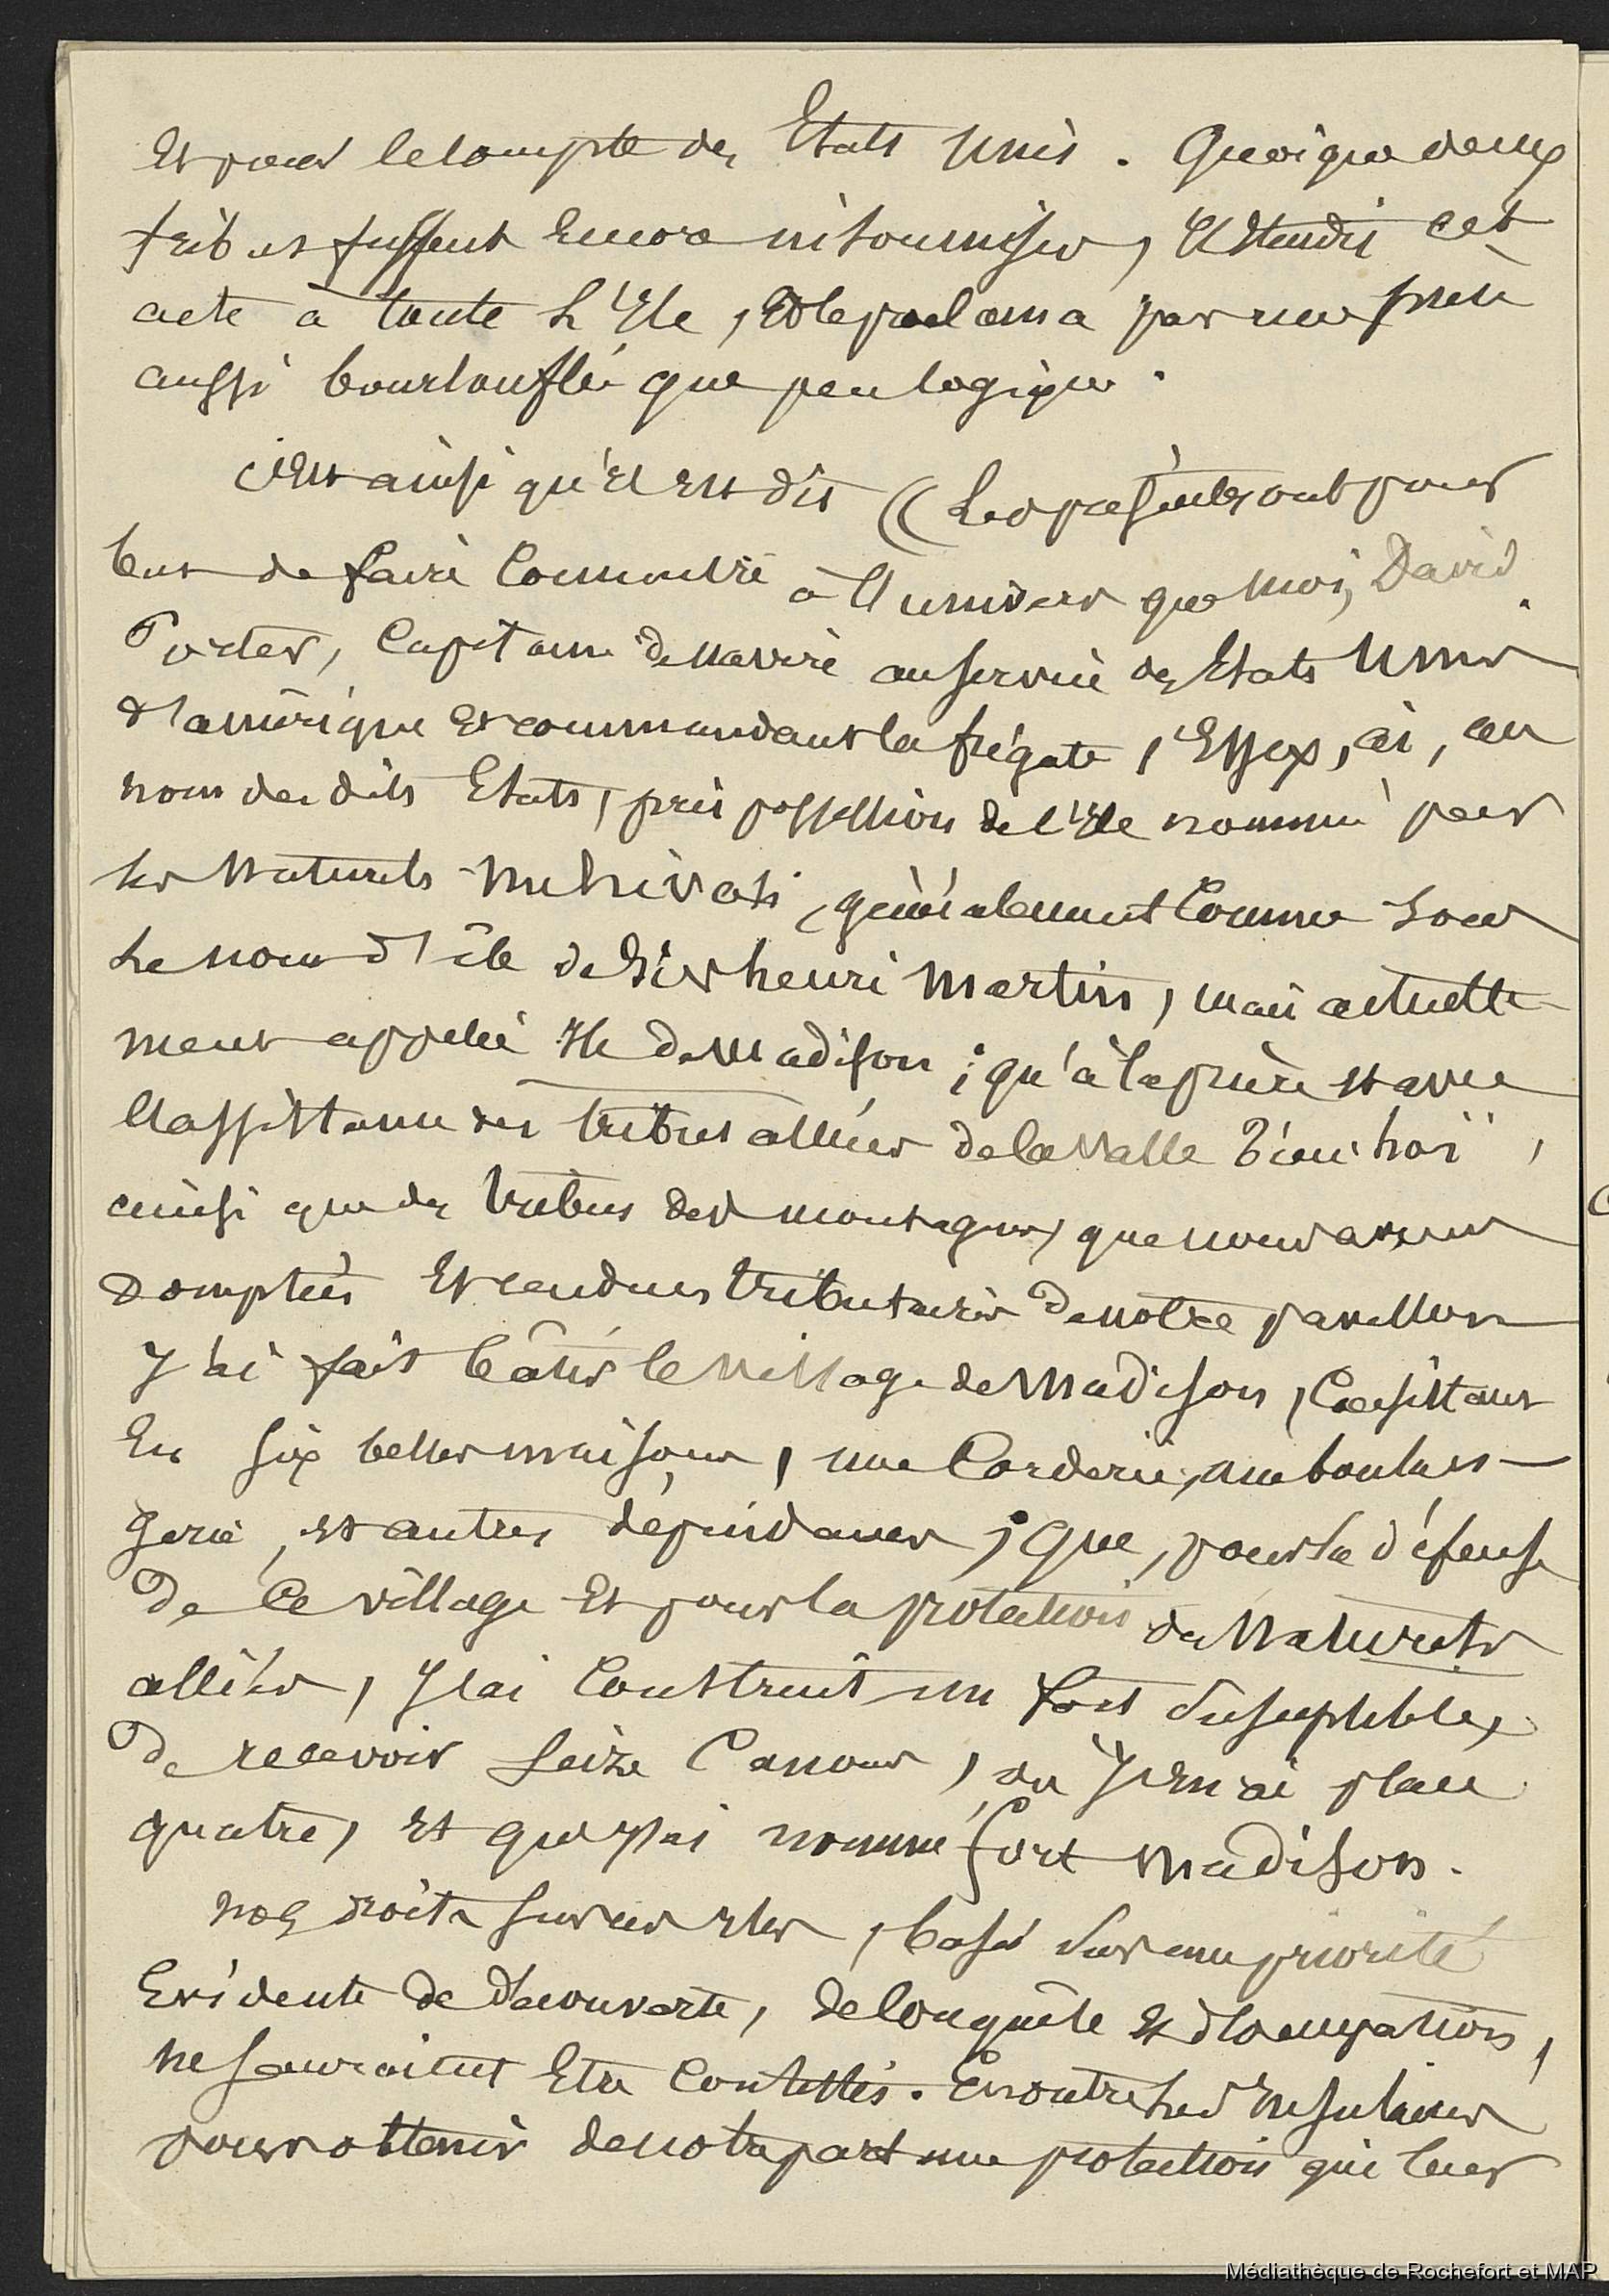 Et pour le compte des Etats Unis. Quoique deux
tribus fussent encore insoumises, il étendis cet
acte à toute l'Ile, et le proclama par une pièce
aussi boursouflée que peu logique.
C'est ainsi qu'il est dit (( Les présentes ont pour
but de faire Connoître à l'univers que moi, David
Porter, Capitaine de navire au service des Etats Unis
d'amérique et commandant la frégate, l'Essex, ai, au
nom des dits Etats, pris possession de l'Ile nommée par
les naturels généralement Connue sous
le nom d'île de Sir henri Martin, mais actuelle
ment appelée Ile de Madison ; qu'à la prière et avec
l'assistance des tribus alliées de la Vallée
ainsi que des tribus des montagnes, que nous avons
domptées et rendues tributaires de notre pavillon
J'ai fait bâtir le village de Madison, Consistant
En six belles maisons, une Corderie, une boulan-
gerie, et autres dépendances ; Que, pour la défense
de Ce village et pour la protection des Naturels
alliés, J'ai Construit un fort susceptible,
de recevoir seize Canons, ou J'en ai placé
quatre, et que j'ai nommé fort Madison.
nos droits sur ces Iles, basés sur une priorité
Evidente de découverte, de Conquête et d'occupation,
ne sauroient Etre Contestés. En outre les Insulaires
pour obtenir de notre part une protection qui leur
Médiathèque de Rochefort et MAP